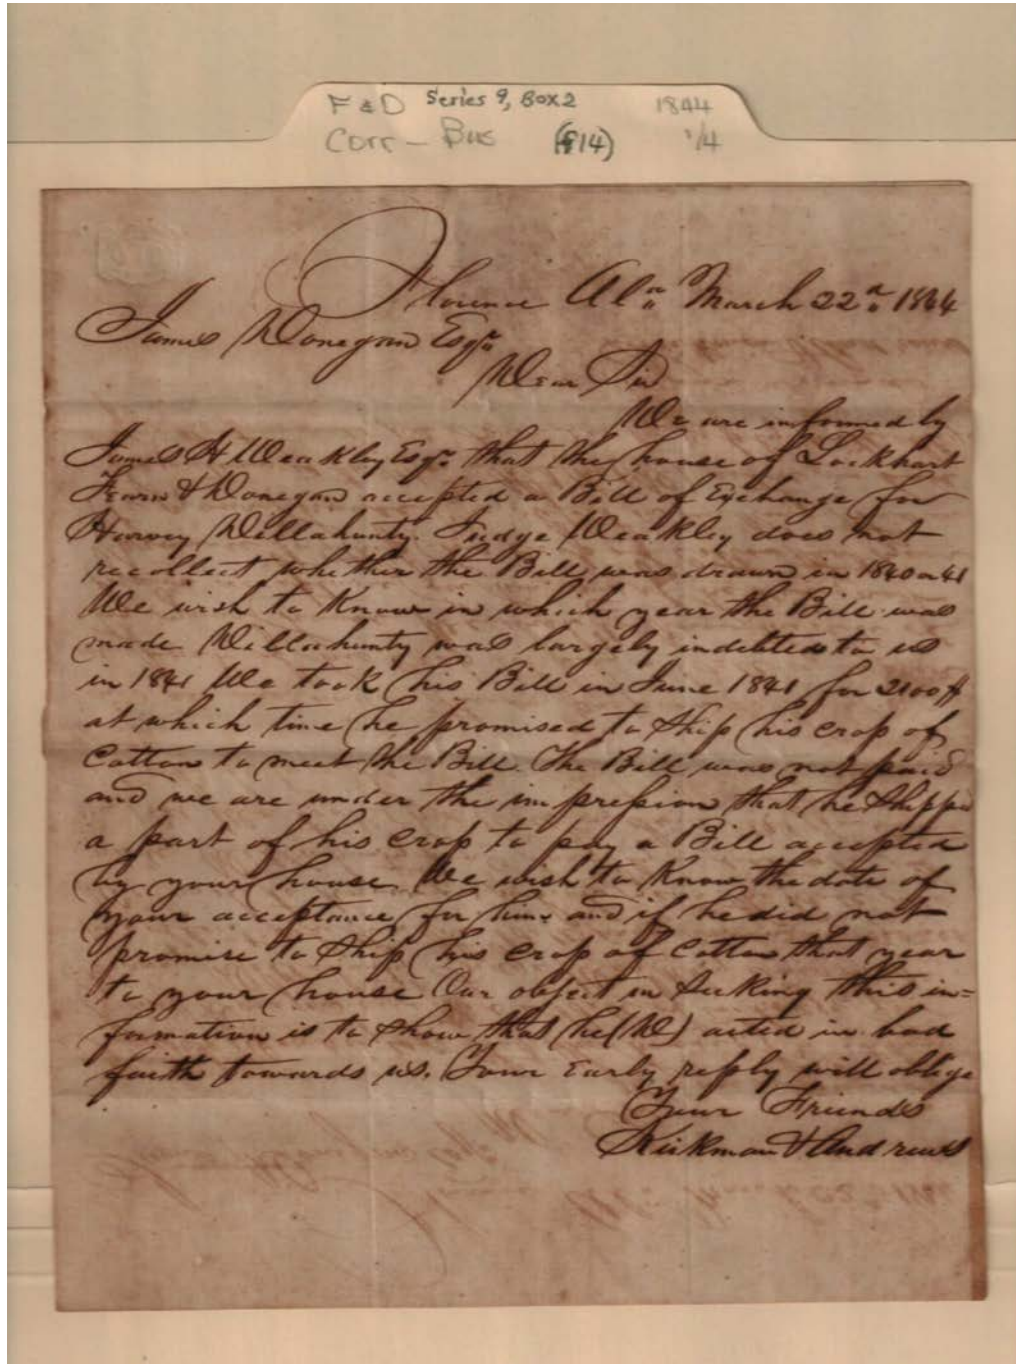 F & D Series 9, Box 2 1844
Corr – Bus (f14) 1/4
Florence Ala March 22d 1844
James Donegan Esqr
Dear Sir
We are informed by
James H Weakley Esqr that the house of Lockhart
Fearn & Donegan accepted a Bill of Exchange for
Harvey Dillahunty. Judge Weakley does not
recollect whether the Bill was drawn in 1840 or 41
We wish to Know in which year the Bill was
made Dillahunty was largely indebted to us
in 1841 We took his Bill in June 1841 for 2100 $
at which time he promised to Ship his crop of
Cotton to meet the Bill. The Bill was not paid
and we are under the impression that he Shipped
a part of his crop to pay a Bill accepted
by your house. We wish to Know the date of
your acceptance for him and if he did not
promise to Ship his crop of Cotton that year
to your house Our object in Seeking this in=
formation is to Show that he (D) acted in bad
faith towards us. Your Early reply will oblige
Your Friends
Kirkman & Andrews